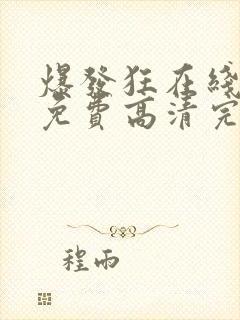 爆發狂在綫
免費高清完
程雨